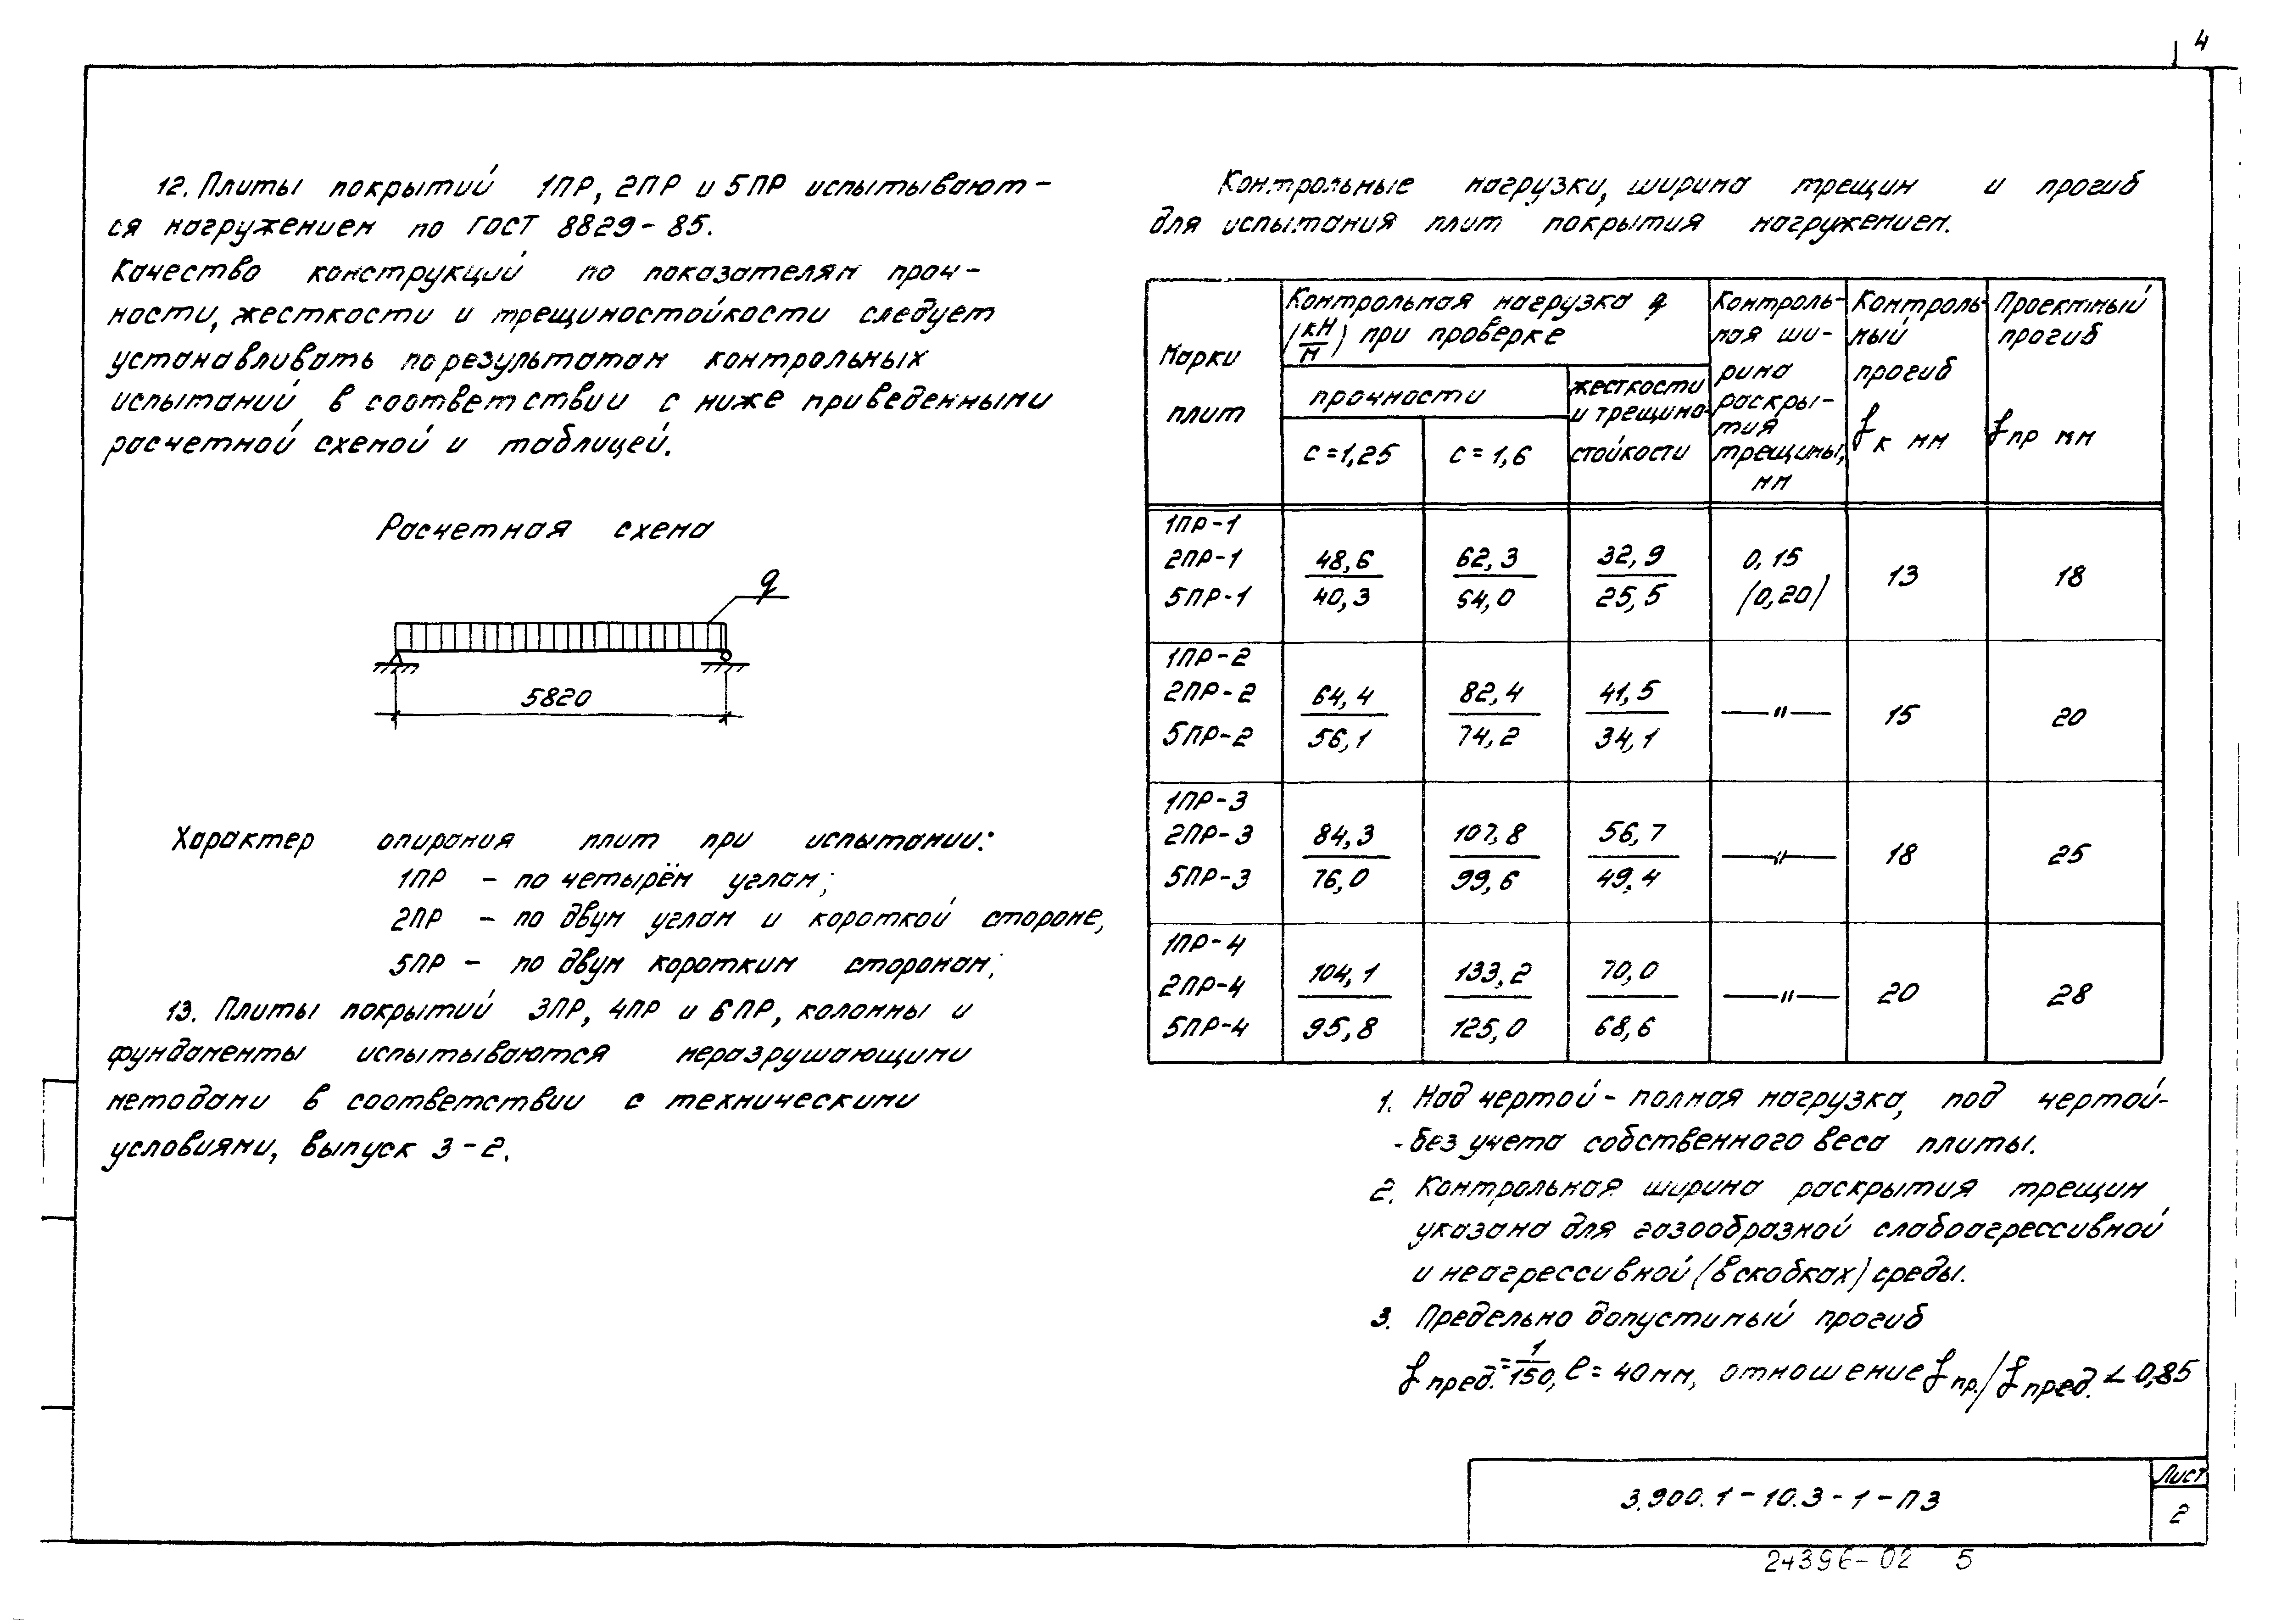 4
12. Плиты покрытий 1ПР, 2ПР и 5ПР испытывают-
ся нагружением по ГОСТ 8829-85.
Качество конструкций по показателям проч-
ности, жесткости и трещиностойкости следует
устанавливать по результатам контрольных
испытаний в соответствии с ниже приведенными
расчетной схемой и таблицей.
Расчетная схема
q
5820
Характер опирания плит при испытании:
1ПР - по четырём углам;
2ПР - по двум углам и короткой стороне,
5ПР - по двум коротким сторонам;
13. Плиты покрытий 3ПР, 4ПР и 6ПР, колонны и
фундаменты испытываются неразрушающими
методами в соответствии с техническими
условиями, выпуск 3-2.
Контрольные нагрузки, ширина трещин и прогиб
для испытания плит покрытия нагружением.
Марки
плит
Контрольная нагрузка q
(кН/м) при проверке
прочности
с=1,25 с=1,6
жесткости
и трещино-
стойкости
Контроль-
ная ши-
рина
раскры-
тия
трещины,
мм
Контроль-
ный
прогиб
fк мм
Проектный
прогиб
fпр мм
1ПР-1
2ПР-1 48,6 62,3 32,9 0,15
13 18
5ПР-1 40,3 54,0 25,5 (0,20)
1ПР-2
2ПР-2 64,4 82,4 41,5
—"— 15 20
5ПР-2 56,1 74,2 34,1
1ПР-3
2ПР-3 84,3 107,8 56,7
—"— 18 25
5ПР-3 76,0 99,6 49,4
1ПР-4
2ПР-4 104,1 133,2 70,0
—"— 20 28
5ПР-4 95,8 125,0 68,6
1. Над чертой - полная нагрузка, под чертой-
-без учета собственного веса плиты.
2. Контрольная ширина раскрытия трещин
указана для газообразной слабоагрессивной
и неагрессивной (в скобках) среды.
3. Предельно допустимый прогиб
fпред.=1/150, ℓ=40мм, отношение fпр./fпред. < 0,85
3.900.1-10.3-1-ПЗ
Лист
2
24396-02 5